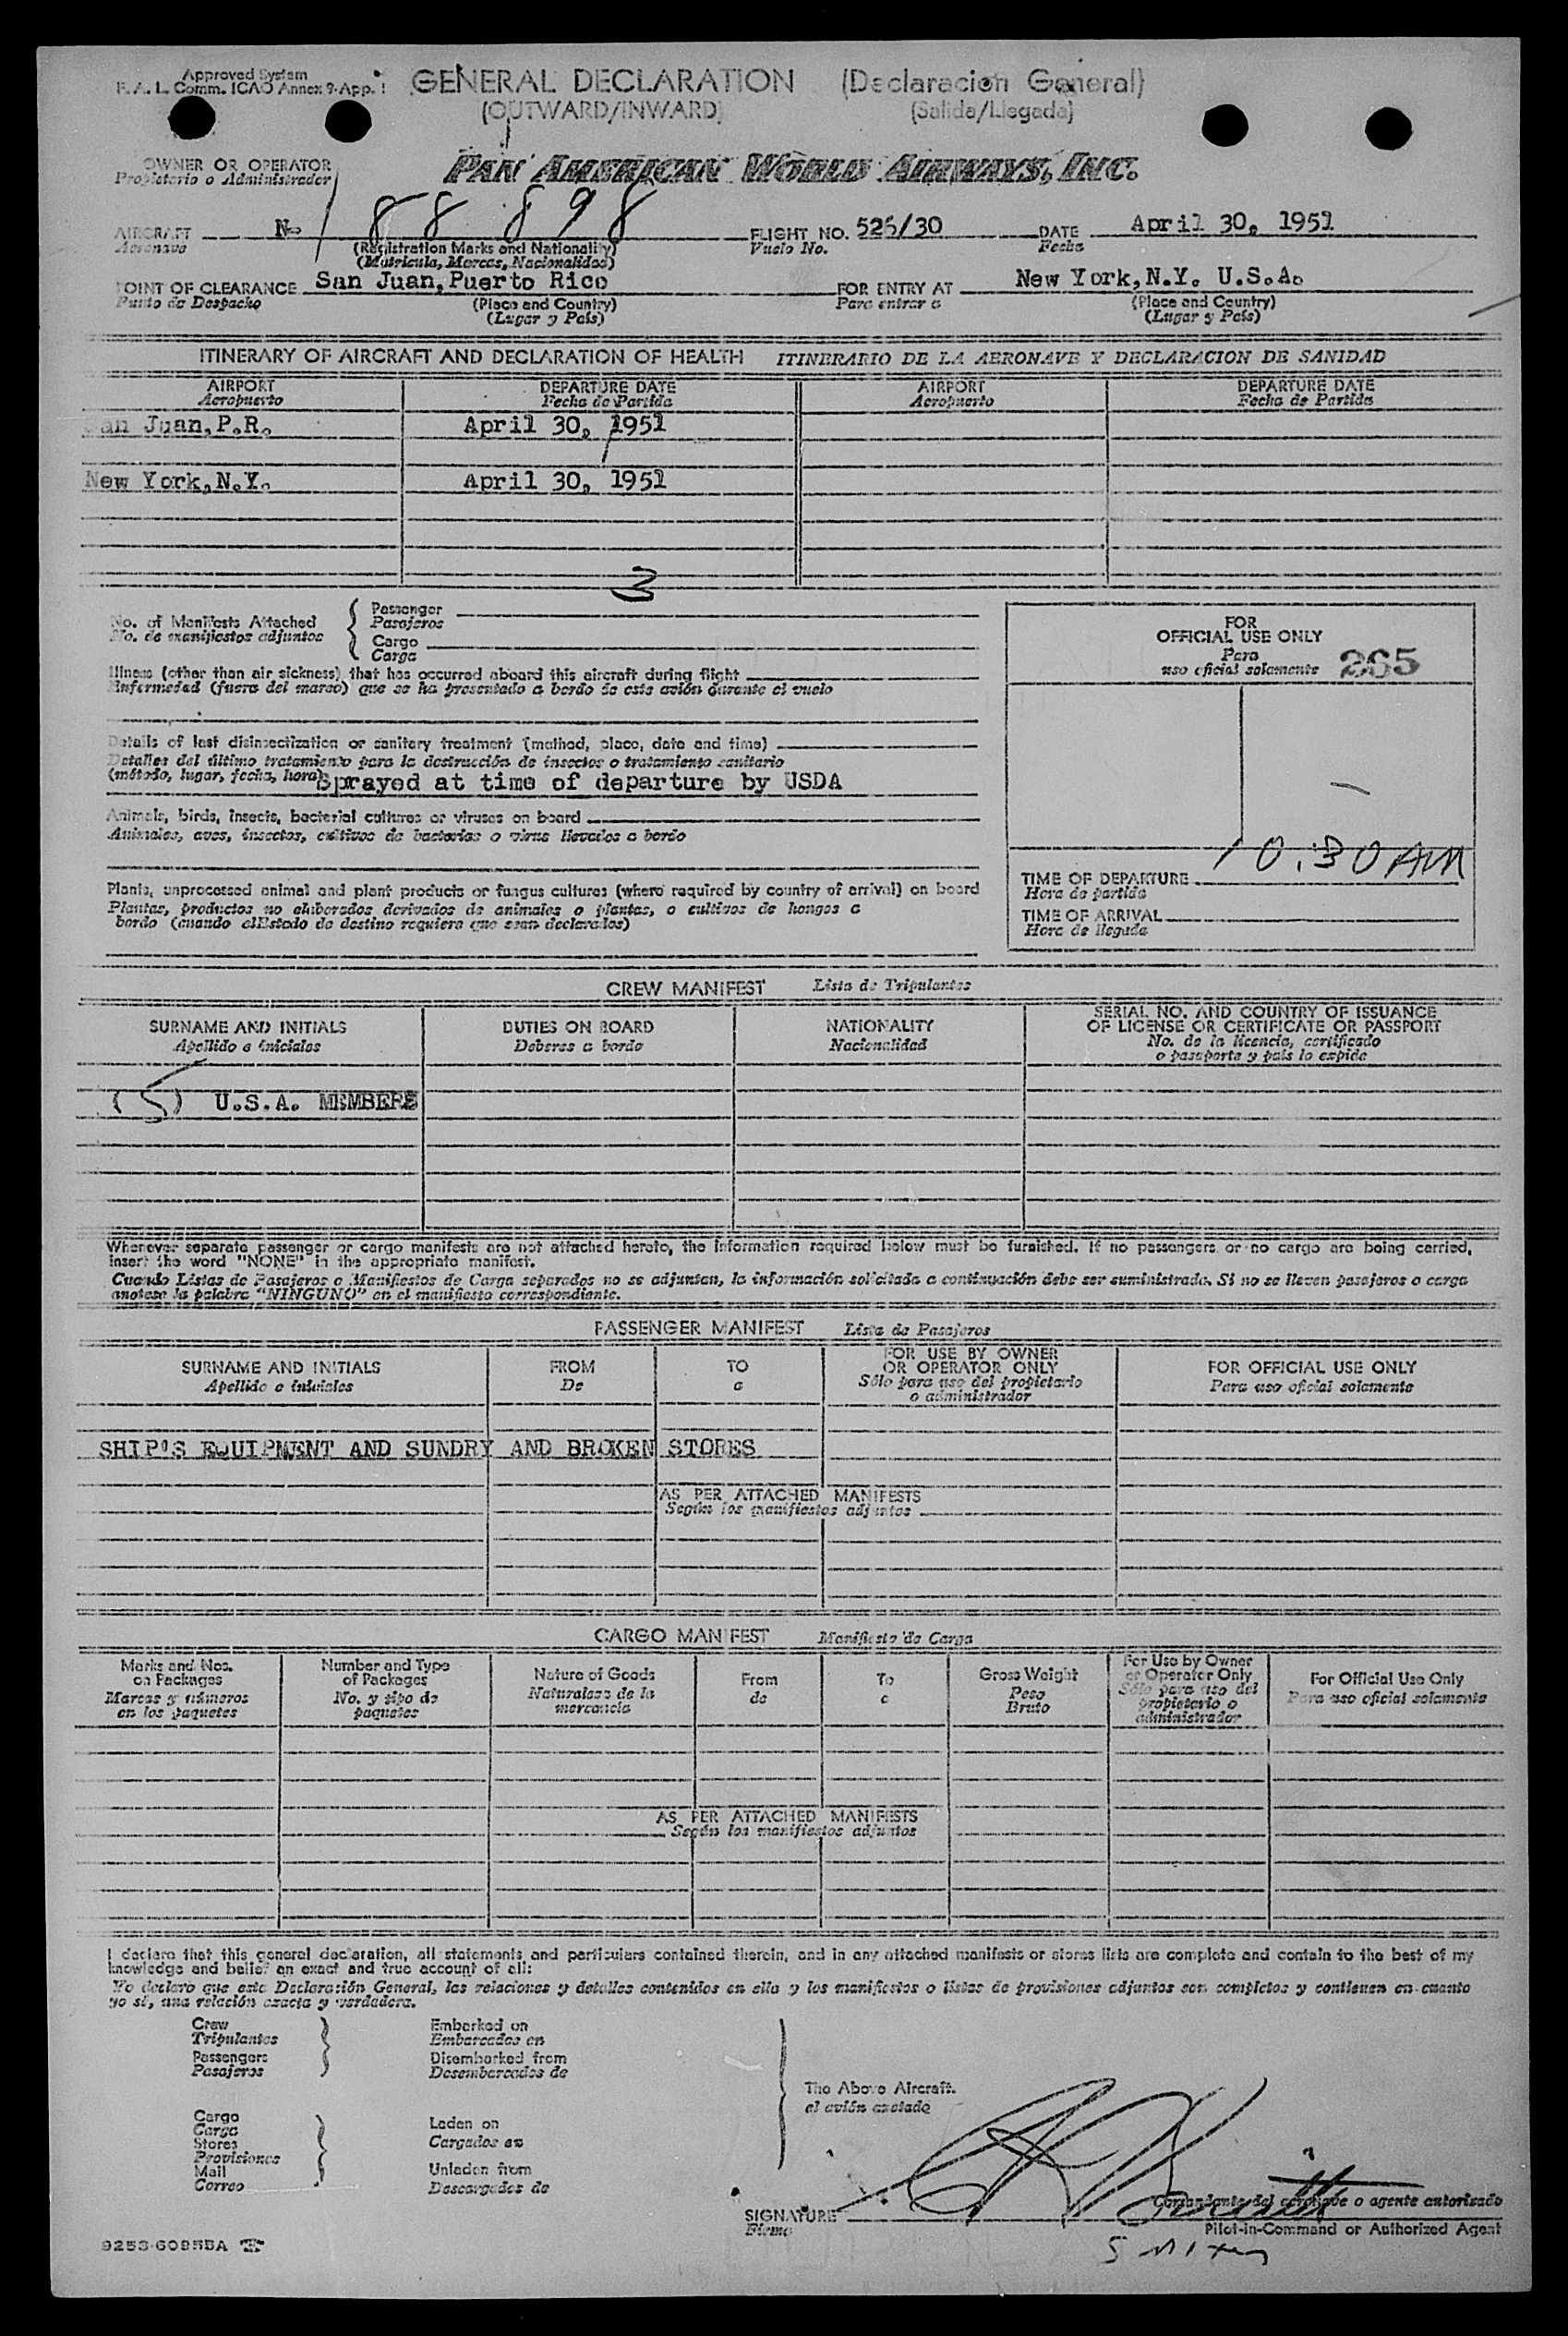 Approved System
F. A. L. Comm. ICAO Annex 9-App. 1
GENERAL DECLARATION (Declaracion General)
(OUTWARD/INWARD) (Salida/Llegada)
OWNER OR OPERATOR
Propietario o Administrador
PAN AMERICAN WORLD AIRWAYS, INC.
AIRCRAFT N- 88898 FLIGHT NO. 526/30 DATE April 30, 1951
Aeronave (Registration Marks and Nationality) Vuelo No. Fecha
(Matricula, Marcas, Nacionalidad)
POINT OF CLEARANCE San Juan, Puerto Rico FOR ENTRY AT New York, N.Y. U.S.A.
Punto de Despacho (Place and Country) Para entrar a (Place and Country)
(Lugar y País) (Lugar y País)
ITINERARY OF AIRCRAFT AND DECLARATION OF HEALTH ITINERARIO DE LA AERONAVE Y DECLARACION DE SANIDAD
AIRPORT DEPARTURE DATE AIRPORT DEPARTURE DATE
Aeropuerto Fecha de Partida Aeropuerto Fecha de Partida
San Juan, P.R. April 30, 1951
New York, N.Y. April 30, 1951
3
No. of Manifests Attached
No. de manifiestos adjuntos
Passenger
Pasajeros
Cargo
Carga
Illness (other than air sickness) that has occurred aboard this aircraft during flight
Enfermedad (fuera del mareo) que se ha presentado a bordo de este avión durante el vuelo
Details of last disinsectization or sanitary treatment (method, place, date and time)
Detalles del último tratamiento para la destrucción de insectos o tratamiento sanitario
(método, lugar, fecha, hora)
Sprayed at time of departure by USDA
Animals, birds, insects, bacterial cultures or viruses on board
Animales, aves, insectos, cultivos de bacterias o virus llevados a bordo
Plants, unprocessed animal and plant products or fungus cultures (where required by country of arrival) on board
Plantas, productos no elaborados derivados de animales o plantas, o cultivos de hongos a
bordo (cuando elEstado de destino requiera que sean declarados)
FOR
OFFICIAL USE ONLY
Para
uso oficial solamente 265
10:30 AM
TIME OF DEPARTURE
Hora de partida
TIME OF ARRIVAL
Hora de llegada
CREW MANIFEST Lista de Tripulantes
SURNAME AND INITIALS DUTIES ON BOARD NATIONALITY SERIAL NO. AND COUNTRY OF ISSUANCE
OF LICENSE OR CERTIFICATE OR PASSPORT
Apellido e iniciales Deberes a bordo Nacionalidad No. de la licencia, certificado
o pasaporte y pais lo expide
(5) U.S.A. MEMBERS
Whenever separate passenger or cargo manifests are not attached hereto, the information required below must be furnished. If no passengers or no cargo are being carried,
insert the word "NONE" in the appropriate manifest.
Cuando Listas de Pasajeros o Manifiestos de Carga separados no se adjuntan, la información solicitada a continuación debe ser suministrada. Si no se llevan pasajeros o carga
anotese la palabra "NINGUNO" en el manifiesto correspondiente.
PASSENGER MANIFEST Lista de Pasajeros
SURNAME AND INITIALS FROM TO FOR USE BY OWNER
OR OPERATOR ONLY FOR OFFICIAL USE ONLY
Apellido e iniciales De a Sólo para uso del propietario
o administrador Para uso oficial solamente
SHIP'S EQUIPMENT AND SUNDRY AND BROKEN STORES
AS PER ATTACHED MANIFESTS
Según los manifiestos adjuntos
CARGO MANIFEST Manifiesto de Carga
Marks and Nos.
on Packages
Marcas y números
en los paquetes
Number and Type
of Packages
No. y tipo de
paquetes
Nature of Goods
Naturaleza de la
mercancia
From
de
To
a
Gross Weight
Peso
Bruto
For Use by Owner
or Operator Only
Sólo para uso del
propietario o
administrador
For Official Use Only
Para uso oficial solamente
AS PER ATTACHED MANIFESTS
Según los manifiestos adjuntos
I declare that this general declaration, all statements and particulars contained therein, and in any attached manifests or stores lists are complete and contain to the best of my
knowledge and belief an exact and true account of all:
Yo declaro que esta Declaración General, las relaciones y detalles contenidos en ella y los manifiestos o listas de provisiones adjuntos son completos y contienen en cuanto
yo sé, una relación exacta y verdadera.
Crew
Tripulantes
Passengers
Pasajeros
Embarked on
Embarcados en
Disembarked from
Desembarcados de
Cargo
Carga
Stores
Provisiones
Mail
Correo
Laden on
Cargados en
Unladen from
Descargados de
The Above Aircraft.
el avión anotado
SIGNATURE
Firma
Comandante del aeronave o agente autorizado
Pilot-in-Command or Authorized Agent
9253-60955A